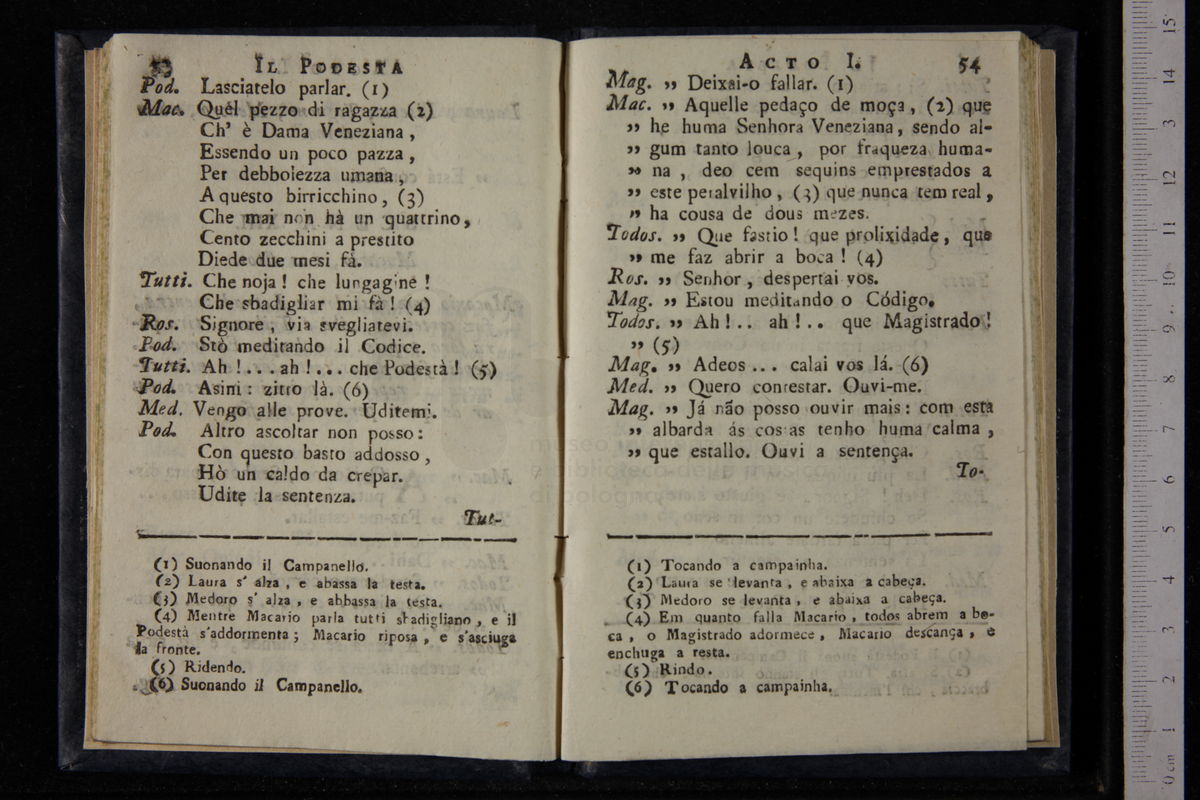 53 IL PODESTA
Pod. Lasciatelo parlar. (1)
Mac. Quel pezzo di ragazza (2)
Ch' è Dama Veneziana,
Essendo un poco pazza,
Per debbolezza umana,
A questo birricchino, (3)
Che mai non hà un quattrino,
Cento zecchini a prestito
Diede due mesi fà.
Tutti. Che noja! che lungagine!
Che sbadigliar mi fà! (4)
Ros. Signore, via svegliatevi.
Pod. Stò meditando il Codice.
Tutti. Ah!... ah!... che Podestà! (5)
Pod. Asini: zitto là. (6)
Med. Vengo alle prove. Uditemi.
Pod. Altro ascoltar non posso:
Con questo basto addosso,
Hò un caldo da crepar.
Udite la sentenza.
Tut-
(1) Suonando il Campanello.
(2) Laura s' alza, e abassa la testa.
(3) Medoro s' alza, e abbassa la testa.
(4) Mentre Macario parla tutti sbadigliano, e il
Podestà s'addormenta; Macario riposa, e s'asciuga
la fronte.
(5) Ridendo.
(6) Suonando il Campanello.
ACTO I. 54
Mag. „ Deixai-o fallar. (1)
Mac. „ Aquelle pedaço de moça, (2) que
„ he huma Senhora Veneziana, sendo al-
„ gum tanto louca, por fraqueza huma-
„ na, deo cem sequins emprestados a
„ este peralvilho, (3) que nunca tem real,
„ ha cousa de dous mezes.
Todos. „ Que fastio! que prolixidade, que
„ me faz abrir a boca! (4)
Ros. „ Senhor, despertai vos.
Mag. „ Estou meditando o Código.
Todos. „ Ah!.. ah!.. que Magistrado!
„ (5)
Mag. „ Adeos... calai vos lá. (6)
Med. „ Quero contestar. Ouvi-me.
Mag. „ Já não posso ouvir mais: com esta
„ albarda ás costas tenho huma calma,
„ que estallo. Ouvi a sentença.
To-
(1) Tocando a campainha.
(2) Laura se levanta, e abaixa a cabeça.
(3) Medoro se levanta, e abaixa a cabeça.
(4) Em quanto falla Macario, todos abrem a bo-
ca, o Magistrado adormece, Macario descança, e
enchuga a testa.
(5) Rindo.
(6) Tocando a campainha.
museo
e biblioteca della musica
di bologna
0 cm 1 2 3 4 5 6 7 8 9 10 11 12 13 14 15